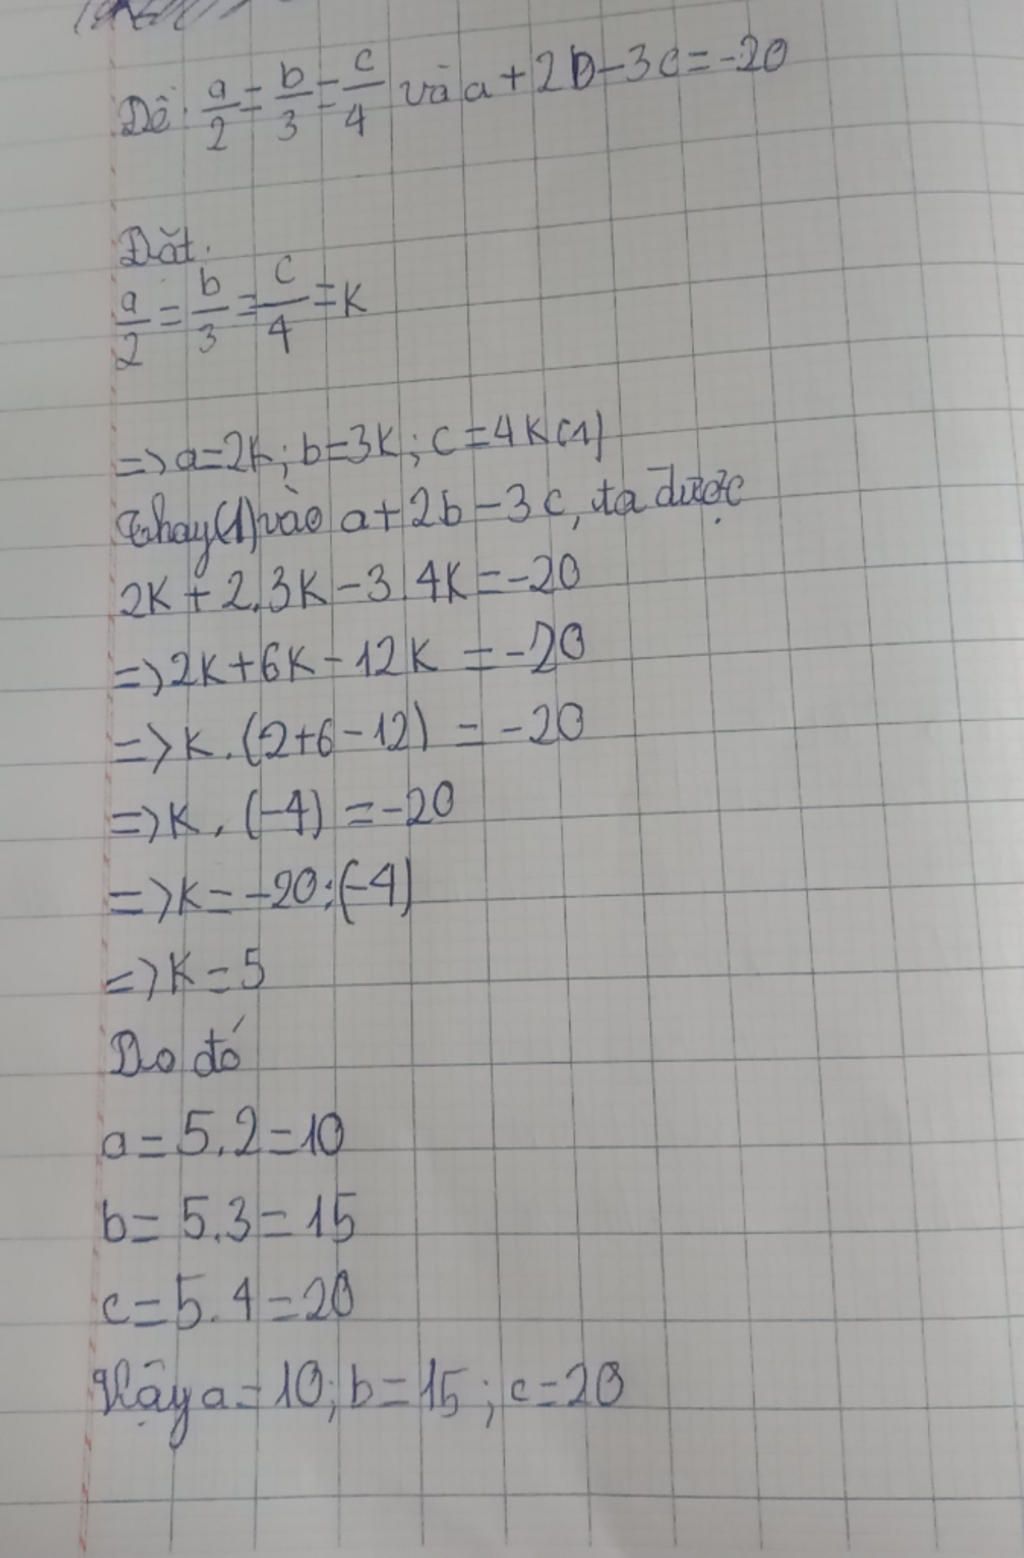 Đề: a/2 = b/3 = c/4 và a + 2b - 3c = -20
Đặt:
a/2 = b/3 = c/4 = K
=> a = 2K; b = 3K; c = 4K (1)
Thay (1) vào a + 2b - 3c, ta được
2K + 2.3K - 3.4K = -20
=> 2K + 6K - 12K = -20
=> K.(2+6-12) = -20
=> K.(-4) = -20
=> K = -20:(-4)
=> K = 5
Do đó
a = 5.2 = 10
b = 5.3 = 15
c = 5.4 = 20
Vậy a = 10; b = 15; c = 20